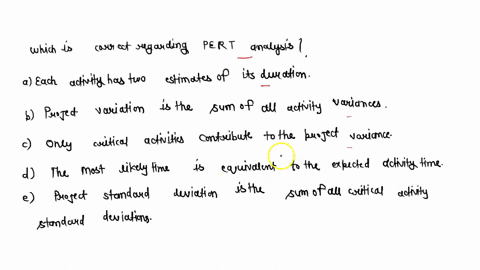 which is correct regarding PERT analysis?
a) Each activity has two estimates of its duration.
b) Project variation is the sum of all activity variances.
c) Only critical activities contribute to the project variance.
d) The most likely time is equivalent to the expected activity time.
e) Project standard deviation is the sum of all critical activity
standard deviations.